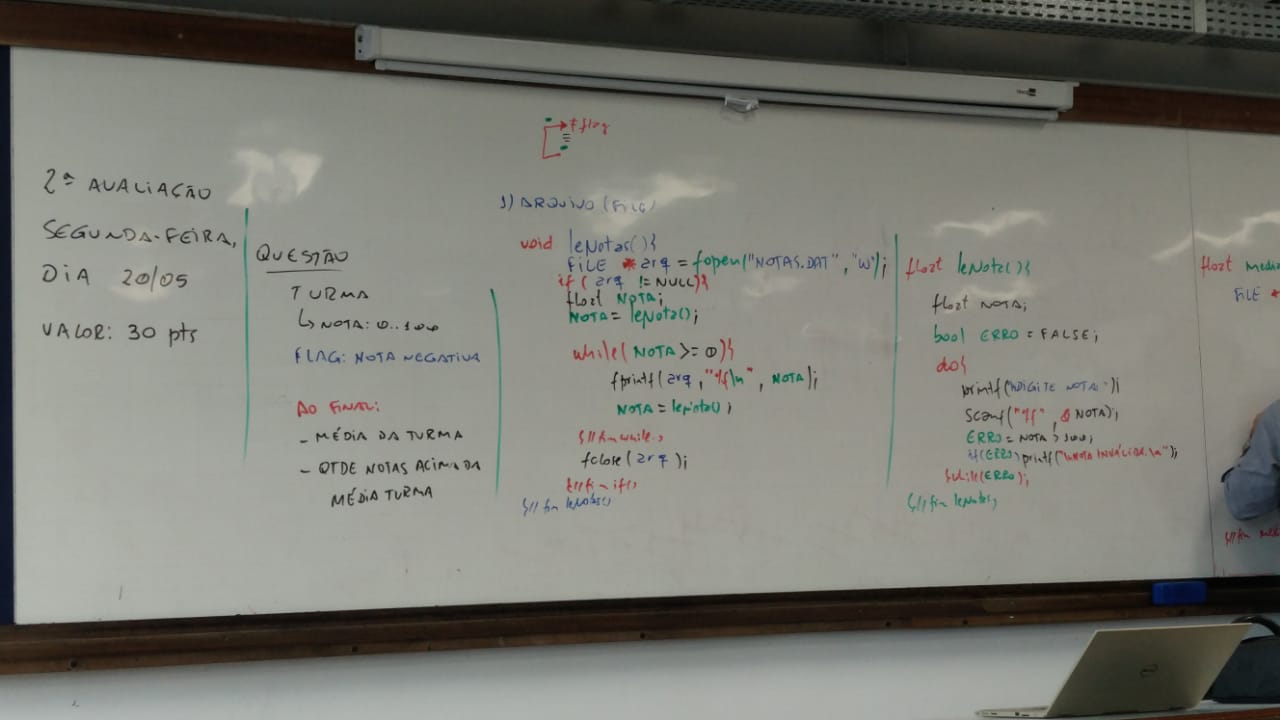 2ª AVALIAÇÃO
SEGUNDA-FEIRA,
DIA 20/05
VALOR: 30 pts
QUESTÃO
TURMA
↳ NOTA: 0..100
FLAG: NOTA NEGATIVA
AO FINAL:
- MÉDIA DA TURMA
- QTDE NOTAS ACIMA DA
MÉDIA TURMA
flag
1) ARQUIVO (FILE)
void leNotas(){
FILE *arq = fopen("NOTAS.DAT", "w");
if ( arq != NULL){
float NOTA;
NOTA = leNota();
while( NOTA >= 0){
fprintf( arq, "%f\n", NOTA);
NOTA = leNota();
}//fim while
fclose( arq );
}//fim if()
}//fim leNotas()
float leNota(){
float NOTA;
bool ERRO = FALSE;
do{
printf("\nDIGITE NOTA: ");
scanf("%f", &NOTA);
ERRO = NOTA > 100;
if(ERRO) printf("\nNOTA INVÁLIDA.\n");
}while(ERRO);
}//fim leNota()
float media
FILE *
}//fim